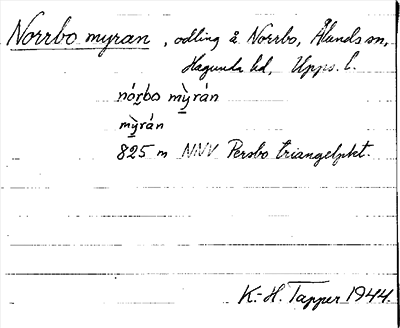 Norrbo myran, odling å Norrbo, Ålunds sn,
Hagunda hd, Upps. l.
nórbo mỳrán
mỳrán
825 m NNV Persbo triangelpkt.
K.-H. Tapper 1944.